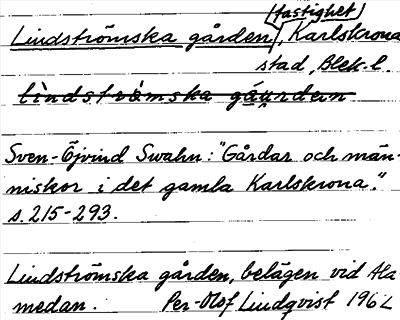 (fastighet)
Lindströmska gården, Karlskrona
stad, Blek. l.
lìndströ̀mska gáu̯rden
Sven-Öjvind Swahn: "Gårdar och män-
niskor i det gamla Karlskrona."
s. 215-293.
Lindströmska gården, belägen vid Ala-
medan. Per-Olof Lindqvist 1962